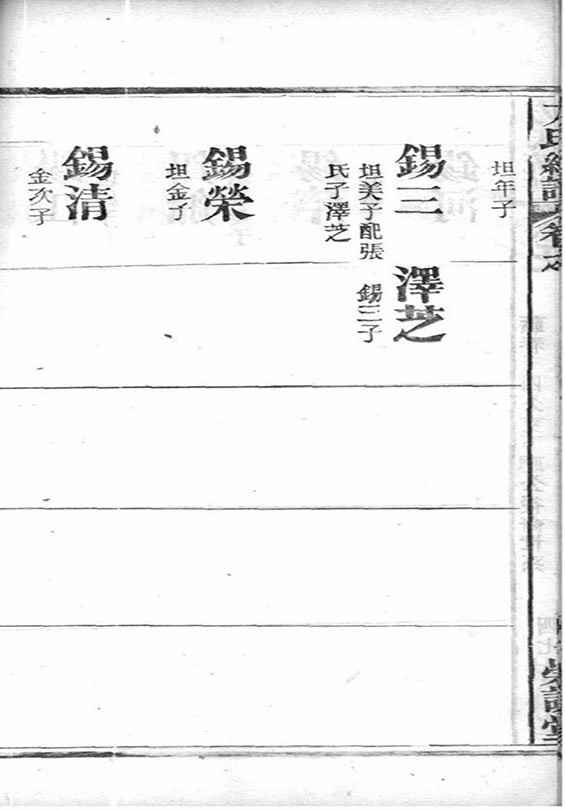 氏總譜
卷之
坦年子
錫三
坦美子配張
氏子澤芝
澤芝
錫三子
錫榮
坦金子
錫清
金次子